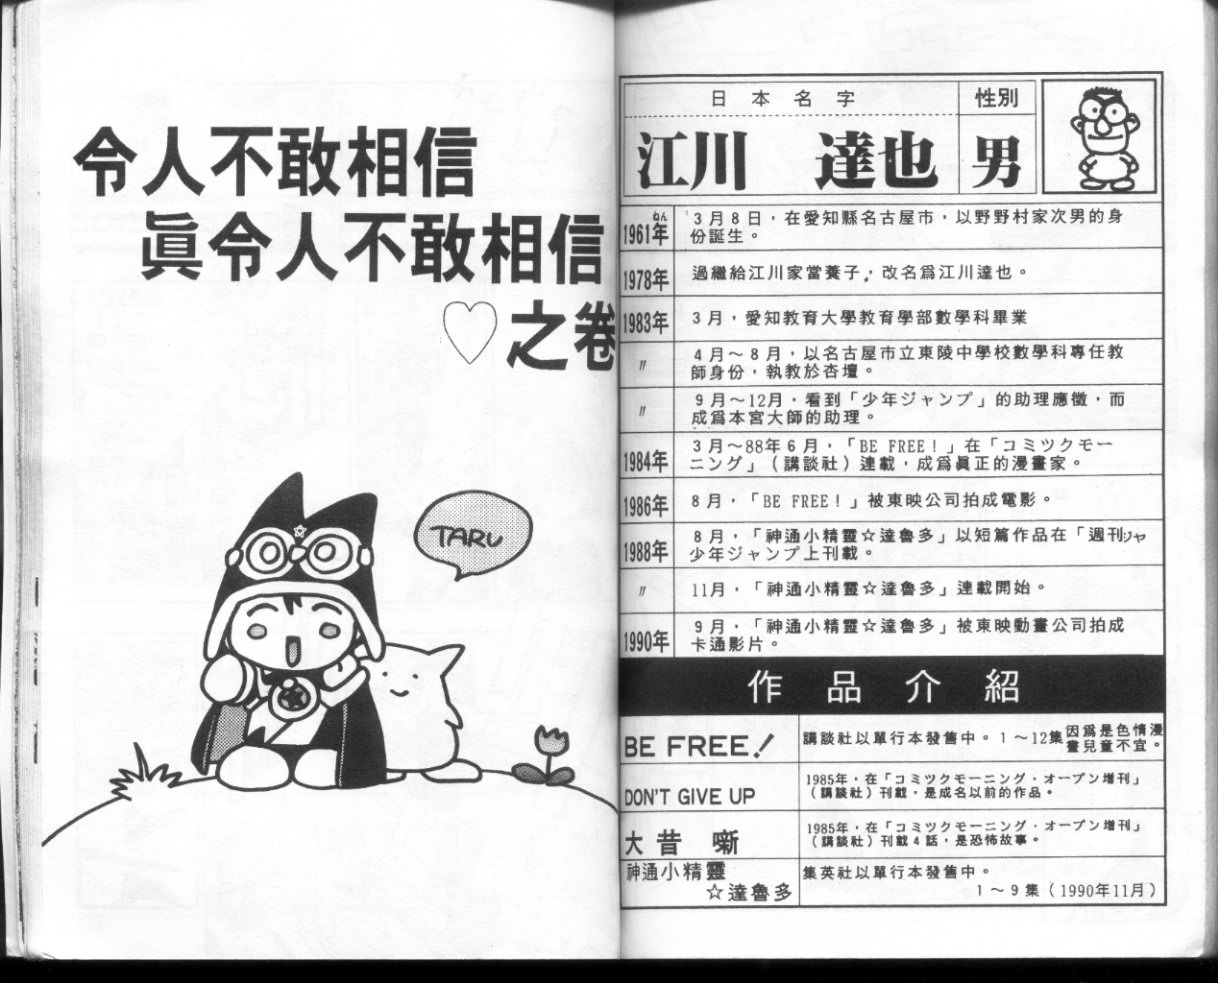 令人不敢相信
眞令人不敢相信
♡之卷
TARU
日本名字
性別
江川　達也
男
ねん
1961年
3月8日，在愛知縣名古屋市，以野野村家次男的身
份誕生。
1978年
過繼給江川家當養子，改名爲江川達也。
1983年
3月，愛知教育大學教育學部數學科畢業
〃
4月～8月，以名古屋市立東陵中學校數學科專任教
師身份，執教於杏壇。
〃
9月～12月，看到「少年ジャンプ」的助理應徵，而
成爲本宮大師的助理。
1984年
3月～88年6月，「BE FREE！」在「コミツクモー
ニング」（講談社）連載，成爲眞正的漫畫家。
1986年
8月，「BE FREE！」被東映公司拍成電影。
1988年
8月，「神通小精靈☆達魯多」以短篇作品在「週刊ジャ
少年ジャンプ上刊載。
〃
11月，「神通小精靈☆達魯多」連載開始。
1990年
9月，「神通小精靈☆達魯多」被東映動畫公司拍成
卡通影片。
作品介紹
BE FREE！
講談社以單行本發售中。1～12集
因爲是色情漫
畫兒童不宜。
DON'T GIVE UP
1985年，在「コミツクモーニング・オープン增刊」
（講談社）刊載，是成名以前的作品。
大昔　噺
1985年，在「コミツクモーニング・オープン增刊」
（講談社）刊載4話，是恐怖故事。
神通小精靈
☆達魯多
集英社以單行本發售中。
1～9集（1990年11月）